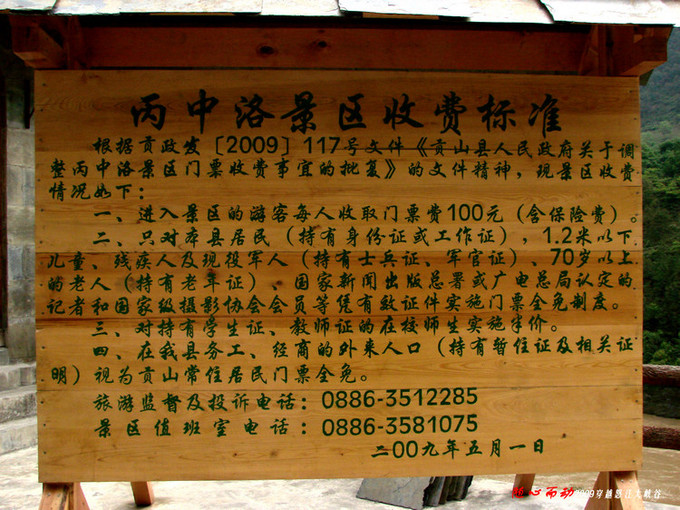 丙中洛景区收费标准
根据贡政发〔2009〕117号文件《贡山县人民政府关于调
整丙中洛景区门票收费事宜的批复》的文件精神，现景区收费
情况如下：
一、进入景区的游客每人收取门票费100元（含保险费）。
二、只对本县居民（持有身份证或工作证），1.2米以下
儿童、残疾人及现役军人（持有士兵证、军官证）、70岁以上
的老人（持有老年证）、国家新闻出版总署或广电总局认定的
记者和国家级摄影协会会员等凭有效证件实施门票全免制度。
三、对持有学生证、教师证的在校师生实施半价。
四、在我县务工、经商的外来人口（持有暂住证及相关证
明）视为贡山常住居民门票全免。
旅游监督及投诉电话：0886-3512285
景区值班室电话：0886-3581075
二00九年五月一日
随心而动2009穿越怒江大峡谷